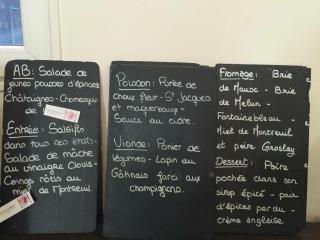 AB: Salade de
jeunes pousses d'épinards
Châtaignes - Cromesquis
de
Entrée: Salsifis
dans tous ses états -
Salade de mâche
au vinaigre Clovis -
Coings rôtis au
miel de Montreuil.
Poisson: Purée de
choux fleur - St Jacques
et maquereaux -
Sauce au cidre.
Viande: Panier de
légumes - Lapin du
Gâtinais farci aux
champignons.
Fromage: Brie
de Meaux - Brie
de Melun -
Fontainebleau -
Miel de Montreuil
et poire Groslay
Dessert: Poire
pochée dans son
sirop épicé - pain
d'épices perdu -
crème anglaise